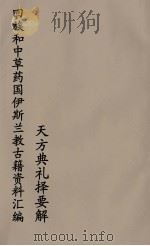 回族和中草药国伊斯兰教古籍资料汇编
天方典礼择要解